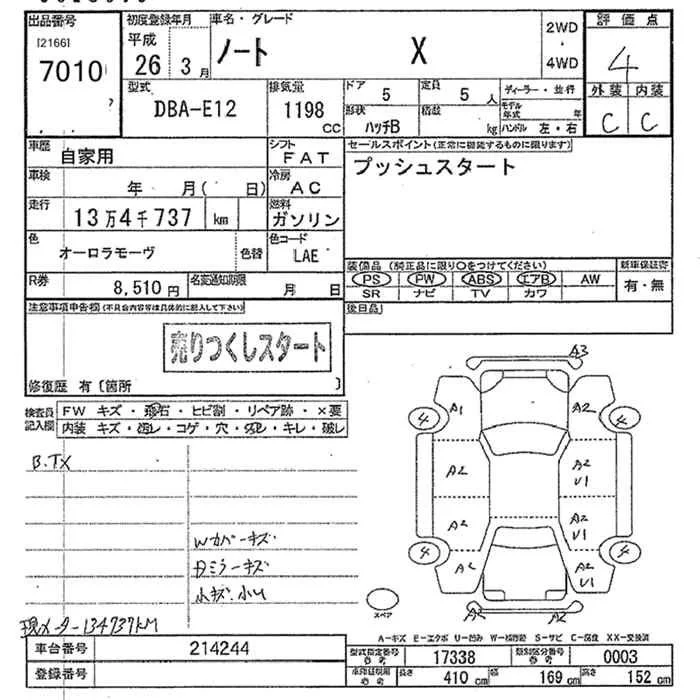 出品番号 初度登録年月 車名・グレード 2WD・4WD 評価点
[21661] 平成 ノート X 4
7010 26 3月 外装 内装
型式 排気量 ドア 定員 ディーラー・並行 C C
DBA-E12 1198 CC 5 5人 モデル年式 年
形状 積載 ハンドル 左・右
ハッチB kg
車歴 シフト セールスポイント(正常に機能するものに限ります)
自家用 FAT プッシュスタート
車検 冷房
年 月( 日) AC
走行 燃料
13万4千737 km ガソリン
色 色替 色コード
オーロラモーヴ LAE
装備品(純正品に限り○をつけてください) 新車保証書
R券 名変通知期限 PS PW ABS エアB AW 有・無
8,510円 月 日 SR ナビ TV カワ
注意事項申告欄(不具合内容等は具体的に記入して下さい) 後日品
売りつくしスタート
修復歴 有〔箇所 〕
検査員記入欄 FW キズ・飛石・ヒビ割・リペア跡・×要
内装 キズ・汚レ・コゲ・穴・スレ・キレ・破レ
B.TX
Wカバーキズ
Dミラーキズ
小キズ.小U
現メーター134737KM
A3
A1 A2
4 4
A2 A2 U1
A2 A2 U1
4 4
A2 A2 U1
A2 A2
スペア
A-キズ E-エクボ U-凹み W-補修跡 S-サビ C-腐食 XX-交換済
車台番号 214244 型式指定番号 参考 17338 類別区分番号 参考 0003
登録番号 車両証明用 参考 長さ 410cm 幅 169cm 高さ 152cm